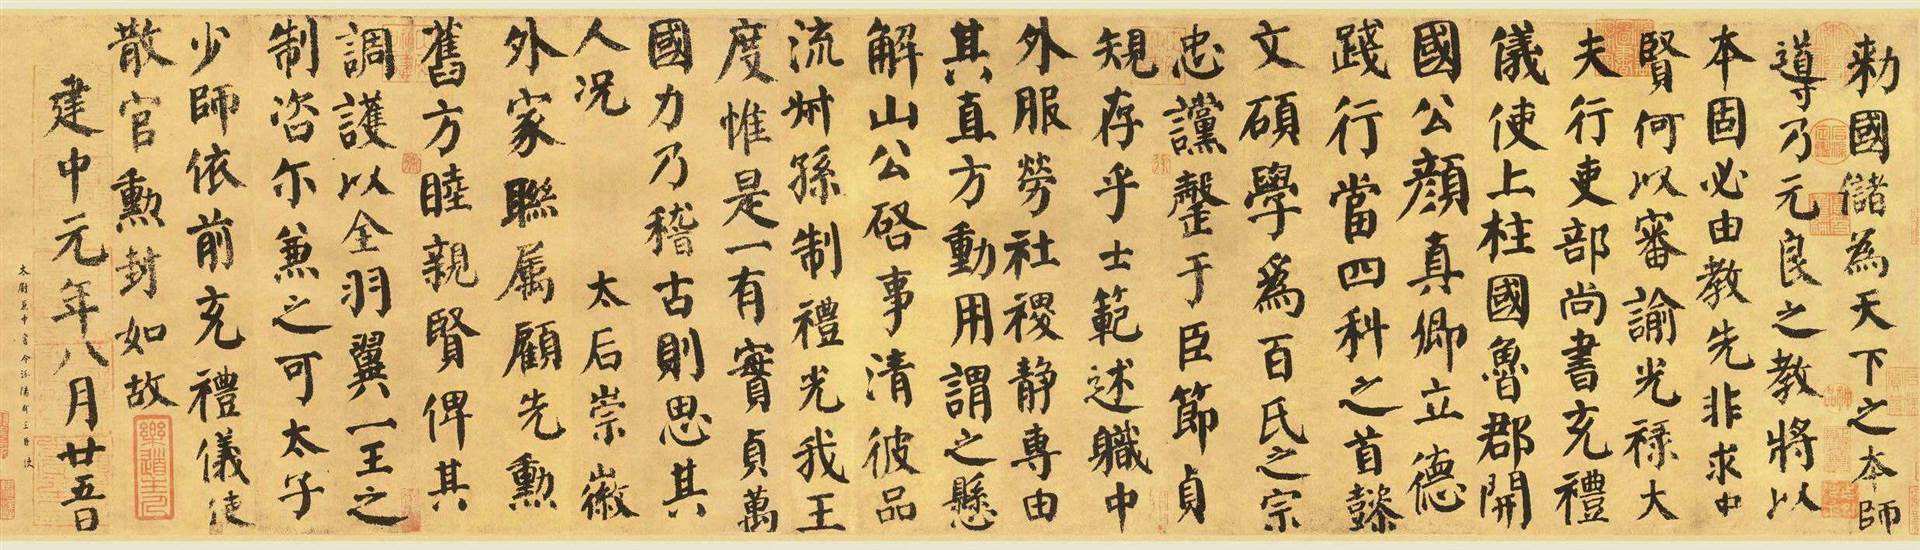 勅國儲為天下之本師
導乃元良之教將以
本固必由教先非求中
賢何以審諭光祿大
夫行吏部尚書充禮
儀使上柱國魯郡開
國公顏真卿立德
踐行當四科之首懿
文碩學爲百氏之宗
忠讜罄于臣節貞
規存乎士範述職中
外服勞社稷靜專由
其直方動用謂之懸
解山公啓事清彼品
流叔孫制禮光我王
度惟是一有實貞萬
國力乃稽古則思其
人況 太后崇徽
外家聯屬顧先勳
舊方睦親賢俾其
調護以全羽翼一王之
制咨尔兼之可太子
少師依前充禮儀使
散官勳封如故
建中元年八月廿五日
太尉兼中書令汾陽郡王臣 使
樂道主人